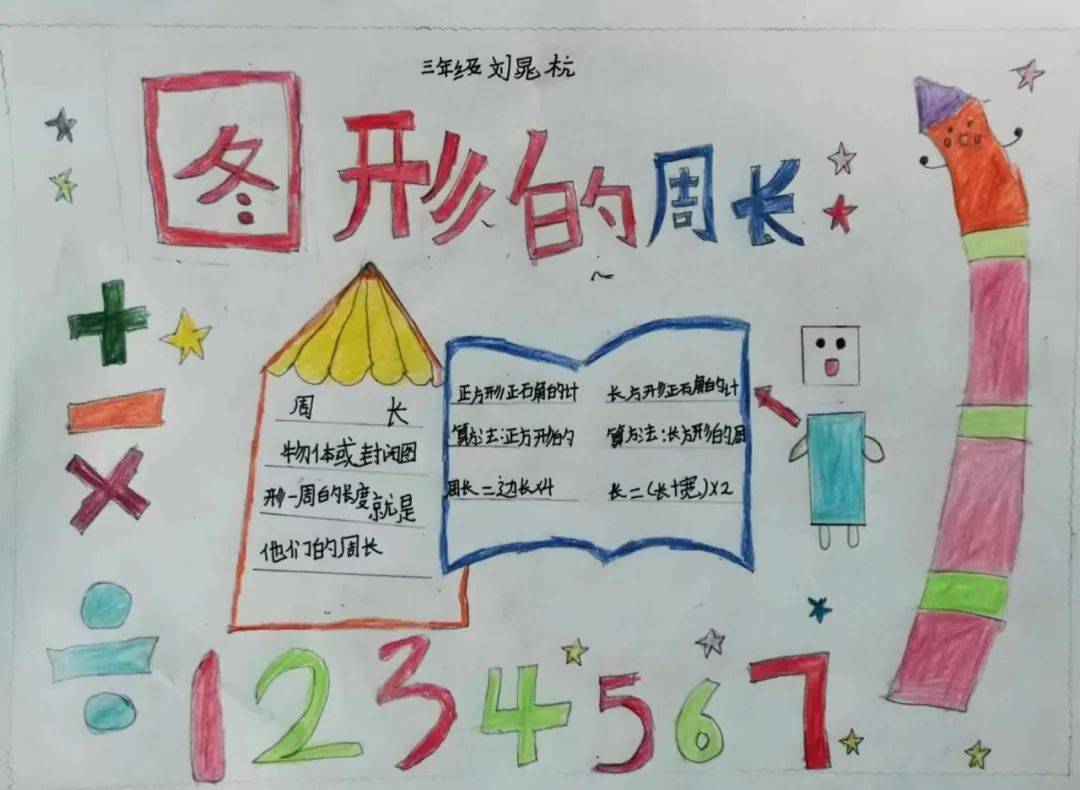 三年级 刘晁杭
图形的周长
+
-
×
÷
周 长
物体或封闭图
形一周的长度就是
他们的周长
正方形正石角的计
算方法:正方形的
周长=边长×4
长方形正石角的计
算方法:长方形的周
长=(长+宽)×2
1 2 3 4 5 6 7